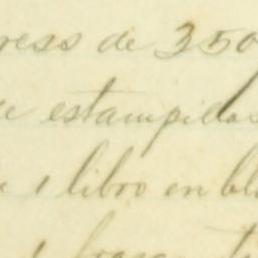 ress de 350
estampillas
1 libro en bl
1